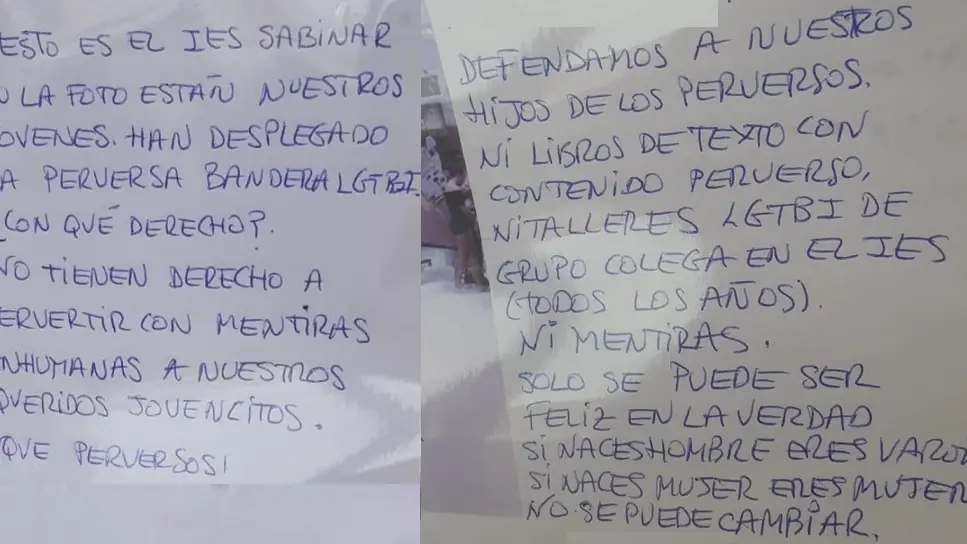 ESTO ES EL IES SABINAR
LA FOTO ESTAÑ NUESTROS
OVENES. HAN DESPLEGADO
A PERVERSA BANDERA LGTBI.
¿CON QUÉ DERECHO?.
NO TIENEN DERECHO A
ERVERTIR CON MENTIRAS
NHUMANAS A NUESTROS
QUERIDOS JOVENCITOS.
QUE PERVERSOS!
DEFENDAMOS A NUESTROS
HIJOS DE LOS PERVERSOS.
NI LIBROS DE TEXTO CON
CONTENIDO PERVERSO,
NI TALLERES LGTBI DE
GRUPO COLEGA EN EL IES
(TODOS LOS AÑOS).
NI MENTIRAS.
SOLO SE PUEDE SER
FELIZ EN LA VERDAD
SI NACES HOMBRE ERES VARO
SI NACES MUJER ERES MUJER
NO SE PUEDE CAMBIAR.